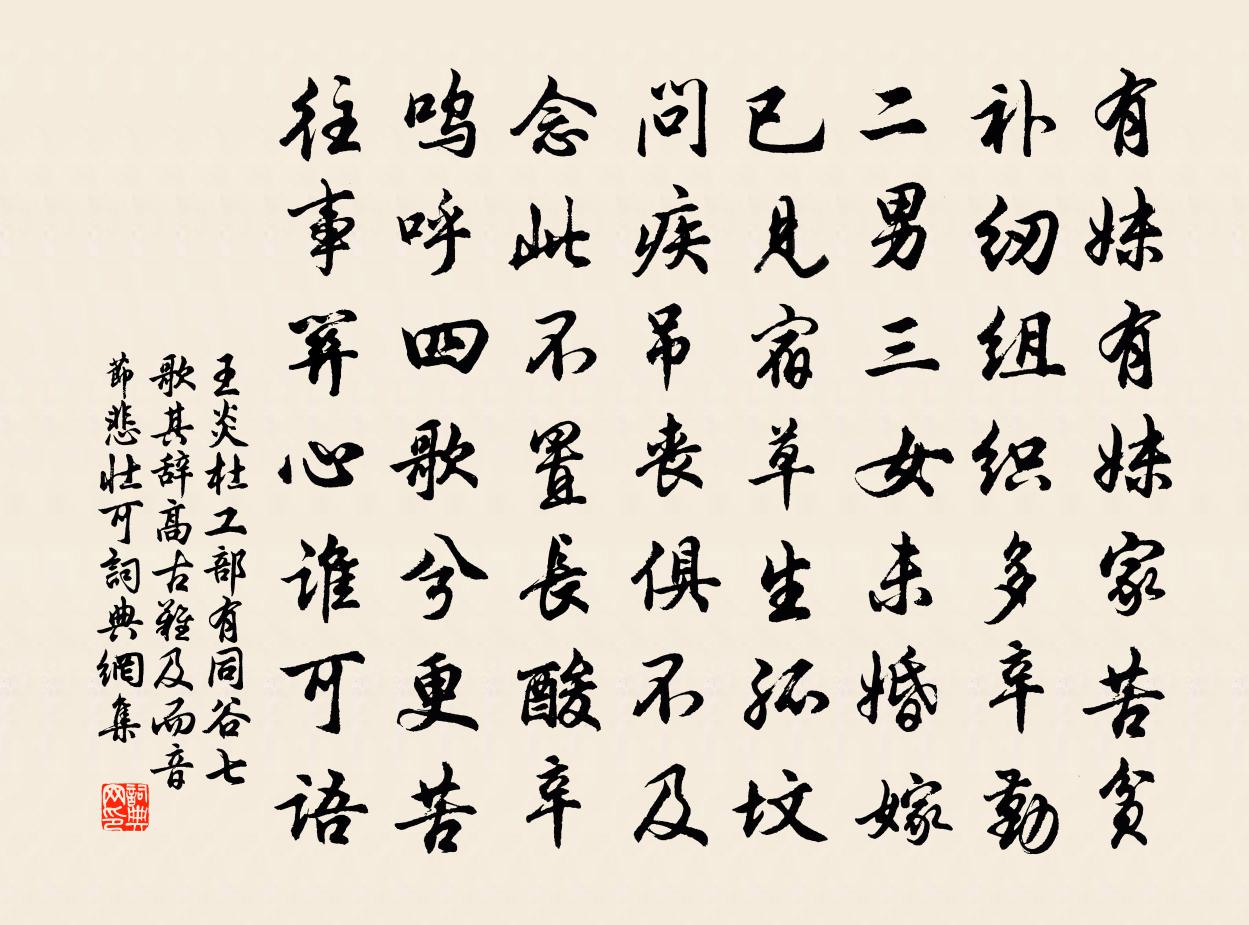 有妹有妹家苦贫
补纫组织多辛勤
二男三女未婚嫁
已见宿草生孤坟
问疾吊丧俱不及
念此不置長酸辛
呜呼四歌兮更苦
往事筭心谁可语
王炎杜工部有同谷七
歌其辞高古難及而音
節悲壮可詞典網集
詞典网印